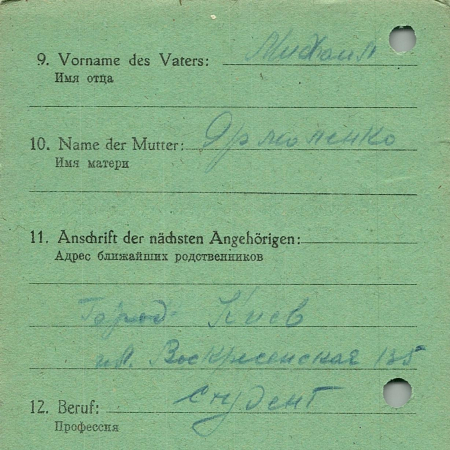 9. Vorname des Vaters: Михаил
Имя отца
10. Name der Mutter: Ярмоленко
Имя матери
11. Anschrift der nächsten Angehörigen:
Адрес ближайших родственников
Город Киев
ул. Воскресенская 135
студент
12. Beruf:
Профессия